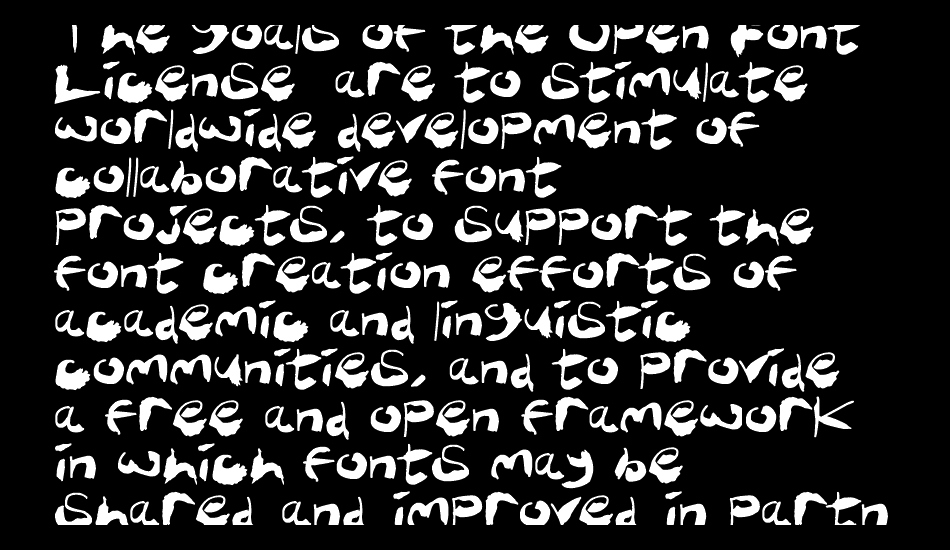 The goals of the Open Font
License are to stimulate
worldwide development of
collaborative font
projects, to support the
font creation efforts of
academic and linguistic
communities, and to provide
a free and open framework
in which fonts may be
shared and improved in partn